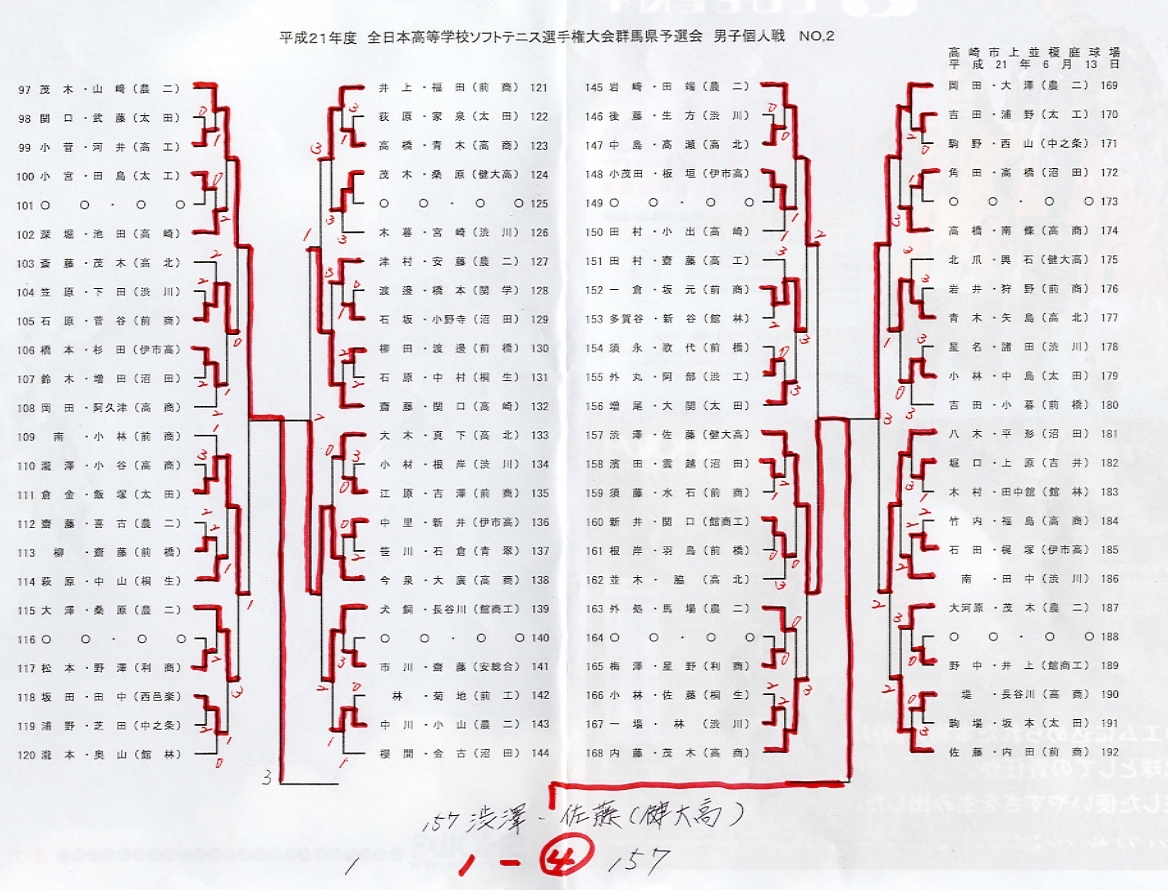 平成21年度 全日本高等学校ソフトテニス選手権大会群馬県予選会 男子個人戦 NO,2
高崎市上並榎庭球場
平成21年6月13日
97 茂木・山崎(農二)
98 関口・武藤(太田)
99 小菅・河井(高工)
100 小宮・田島(太工)
101 ○ ○ ・ ○ ○
102 深堀・池田(高崎)
103 斎藤・茂木(高北)
104 笠原・下田(渋川)
105 石原・菅谷(前商)
106 橋本・杉田(伊市高)
107 鈴木・増田(沼田)
108 岡田・阿久津(高商)
109 南・小林(前商)
110 瀧澤・小谷(高商)
111 倉金・飯塚(太田)
112 齋藤・喜古(農二)
113 柳・齋藤(前橋)
114 萩原・中山(桐生)
115 大澤・桑原(農二)
116 ○ ○ ・ ○ ○
117 松本・野澤(利商)
118 坂田・田中(西邑楽)
119 浦野・芝田(中之条)
120 瀧本・奥山(館林)
井上・福田(前商) 121
荻原・家泉(太田) 122
高橋・青木(高商) 123
茂木・桑原(健大高) 124
○ ○ ・ ○ ○ 125
木暮・宮崎(渋川) 126
津村・安藤(農二) 127
渡邊・橋本(関学) 128
石坂・小野寺(沼田) 129
柳田・渡邊(前橋) 130
石原・中村(桐生) 131
齋藤・関口(高崎) 132
大木・真下(高北) 133
小材・根岸(渋川) 134
江原・吉澤(前商) 135
中里・新井(伊市高) 136
笹川・石倉(青翠) 137
今泉・大廣(高商) 138
犬飼・長谷川(館商工) 139
○ ○ ・ ○ ○ 140
市川・齋藤(安総合) 141
林・菊地(前工) 142
中川・小山(農二) 143
櫻間・金古(沼田) 144
145 岩崎・田端(農二)
146 後藤・生方(渋川)
147 中島・高瀬(高北)
148 小茂田・板垣(伊市高)
149 ○ ○ ・ ○ ○
150 田村・小出(高崎)
151 田村・齋藤(高工)
152 一倉・坂元(前商)
153 多賀谷・新谷(館林)
154 須永・歌代(前橋)
155 外丸・阿部(渋工)
156 増尾・大関(太田)
157 渋澤・佐藤(健大高)
158 濱田・雲越(沼田)
159 須藤・水石(前商)
160 新井・関口(館商工)
161 根岸・羽鳥(前橋)
162 並木・脇(高北)
163 外処・馬場(農二)
164 ○ ○ ・ ○ ○
165 梅澤・星野(利商)
166 小林・佐藤(桐生)
167 一場・林(渋川)
168 内藤・茂木(高商)
岡田・大澤(農二) 169
吉田・浦野(太工) 170
駒野・西山(中之条) 171
角田・高橋(沼田) 172
○ ○ ・ ○ ○ 173
高橋・南條(高商) 174
北爪・興石(健大高) 175
岩井・狩野(前商) 176
青木・矢島(高北) 177
星名・諸田(渋川) 178
小林・中島(太田) 179
吉田・小暮(前橋) 180
八木・平形(沼田) 181
堀口・上原(吉井) 182
木村・田中館(館林) 183
竹内・福島(高商) 184
石田・梶塚(伊市高) 185
南・田中(渋川) 186
大河原・茂木(農二) 187
○ ○ ・ ○ ○ 188
野中・井上(館商工) 189
堤・長谷川(高商) 190
駒場・坂本(太田) 191
佐藤・内田(前商) 192
3
157 渋澤・佐藤(健大高)
1 1-④ 157